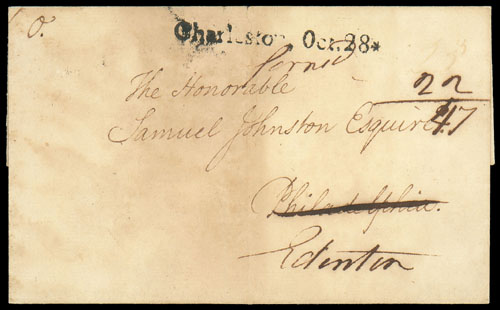 o.
Charleston Oct. 28*
The Honorable
22
Samuel Johnston Esquire
47
Philadelphia.
Edenton